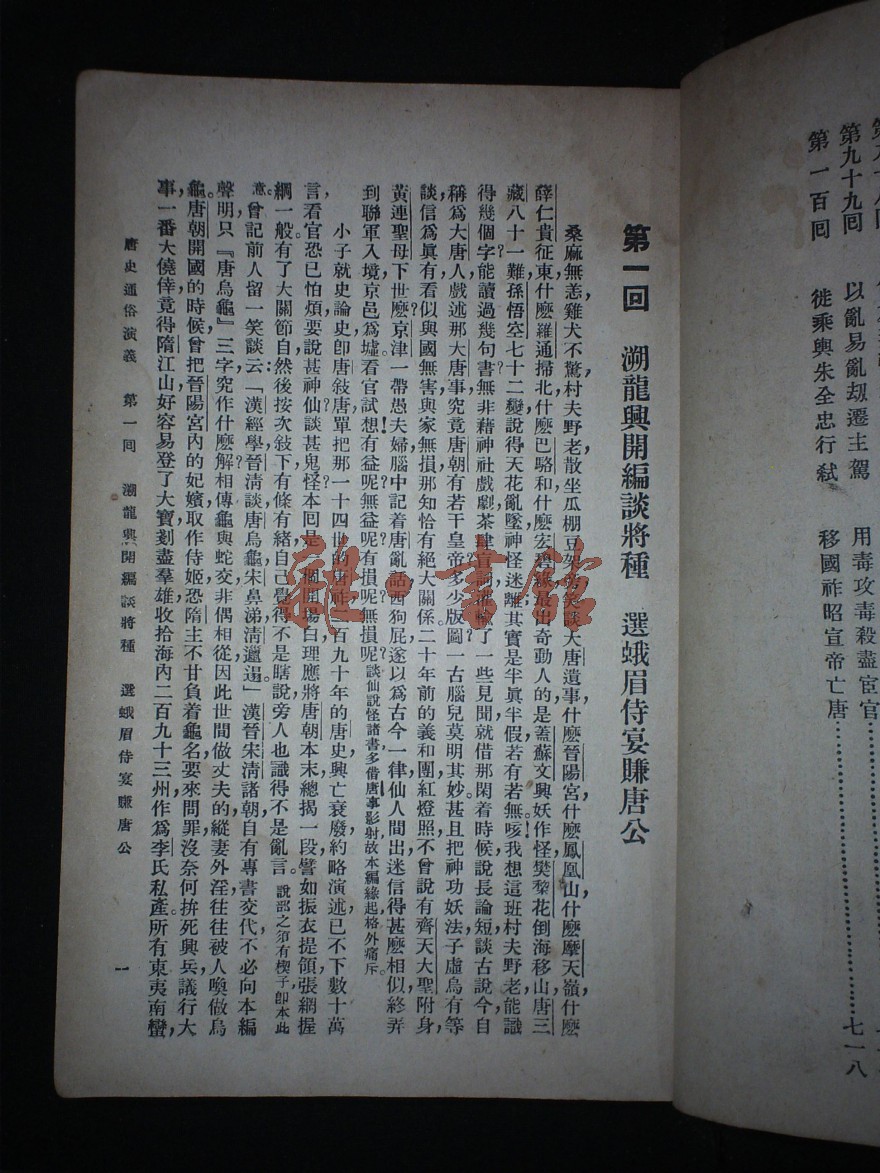 第九十九回 以亂易亂劫遷主駕 用毒攻毒殺盡宦官
第一百回 徙乘輿朱全忠行弒 移國祚昭宣帝亡唐……七一八
第一回 溯龍興開編談將種 選蛾眉侍宴賺唐公
桑麻無恙，雞犬不驚，村夫野老，散坐瓜棚豆架旁，笑談大唐遺事，什麽晉陽宮，什麽鳳凰山，什麽摩天嶺，什麽
薛仁貴征東，什麽羅通掃北，什麽巴駱和，什麽宏碧緣，最出奇動人的，是蓋蘇文興妖作怪，樊黎花倒海移山，唐三
藏八十一難，孫悟空七十二變，說得天花亂墜，神怪迷離，其實是半真半假，若有若無。咳！我想這班村夫野老，能識
得幾個字？能讀過幾句書？無非藉神社戲劇，茶肆盲詞，灌輸了一些見聞，就借那閑着時候，說長論短，談古說今，自
稱為大唐人，戲述那大唐事，究竟唐朝有若干皇帝？多少版圖？一古腦兒莫明其妙。甚且把神功妖法，子虛烏有等
談，信為真有，看似與國無害，與家無損，那知恰有絕大關係。二十年前的義和團紅燈照，不曾說有齊天大聖附身，
黃連聖母下世麽？京津一帶愚夫婦，腦中記着唐亂話西狗屁，遂以為古今一律，仙人間出，迷信得甚麽相似，終弄
到聯軍入境，京邑為墟。看官試想，有益呢？無益呢？有損呢？無損呢？談仙說怪諸書，多借唐事影射，故本編緣起，格外痛斥。
小子就史論史，即唐敍唐，單把那一十四世的唐祚，二百九十年的唐史，興亡衰廢，約略演述，已不下數十萬
言，看官恐已怕煩，要說甚神仙，談甚鬼怪？本回是一個開場白，理應將唐朝本末，總揭一段，譬如振衣提領，張網握
綱一般，有了大關節，自然後按次敍下，有條有緒，自己覺得不是瞎說，旁人也識得不是亂言。說部之須有楔子，即本此
意。曾記前人留一笑談云：「漢經學，晉清談，唐烏龜，宋鼻涕，清邋遢。」漢晉宋清諸朝，自有專書交代，不必向本編
聲明，只『唐烏龜』三字，究作什麽解？相傳龜與蛇交，非偶相從，因此世間做丈夫的，縱妻外淫，往往被人喚做烏
龜。唐朝開國的時候，曾把晉陽宮內的妃嬪，取作侍姬，恐隋主不甘負着龜名，要來問罪，沒奈何拚死興兵，議行大
事，一番大僥倖，竟得隋江山，好容易登了大寶，剗盡羣雄，收拾海內二百九十三州，作為李氏私產。所有東夷南蠻，
唐史通俗演義 第一回 溯龍興開編談將種 選蛾眉侍宴賺唐公 一